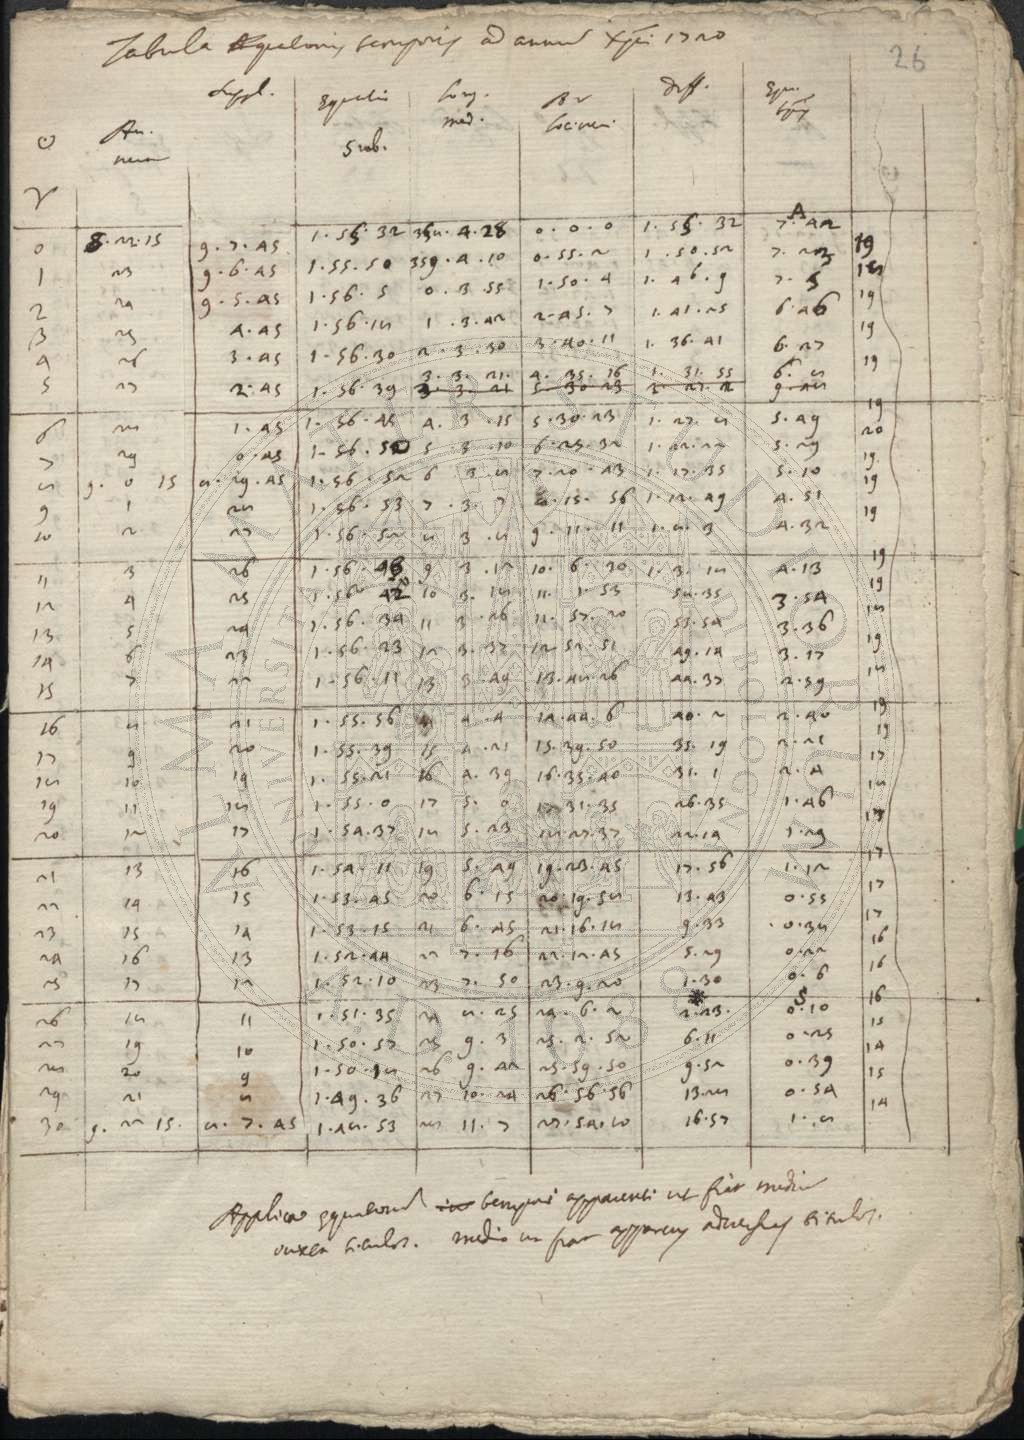 Tabula Equationis temporis ad annum Xpi 1720
26
☉ An. vera Suppl. Equatio Sub. Long. med. AR loci veri Diff. Equ. temp.
♈
A
0 8.22.15 9.7.45 1.55.32 358.4.28 0.0.0 1.55.32 7.42
1 23 9.6.45 1.55.50 359.4.10 0.55.2 1.50.52 7.23 19
2 24 9.5.45 1.56.5 0.3.55 1.50.4 1.46.9 7.5 18
3 25 4.45 1.56.18 1.3.42 2.45.7 1.41.25 6.46 19
4 26 3.45 1.56.30 2.3.30 3.40.11 1.36.41 6.27 19
5 27 2.45 1.56.39 3.3.21 4.35.16 1.31.55 6.8 19
6 28 1.45 1.56.45 4.3.15 5.30.23 1.27.8 5.49 19
7 29 0.45 1.56.50 5.3.10 6.25.32 1.22.22 5.29 20
8 9.0.15 8.29.45 1.56.52 6.3.8 7.20.43 1.17.35 5.10 19
9 1 28 1.56.53 7.3.7 8.15.56 1.12.49 4.51 19
10 2 27 1.56.52 8.3.8 9.11.11 1.8.3 4.32 19
11 3 26 1.56.48 9.3.12 10.6.30 1.3.18 4.13 19
12 4 25 1.56.42 10.3.18 11.1.53 58.35 3.54 19
13 5 24 1.56.34 11.3.26 11.57.20 53.54 3.36 18
14 6 23 1.56.23 12.3.37 12.52.51 49.14 3.17 19
15 7 22 1.56.11 13.3.49 13.48.26 44.37 2.59 18
16 8 21 1.55.56 14.4.4 14.44.6 40.2 2.40 19
17 9 20 1.55.39 15.4.21 15.39.50 35.19 2.21 19
18 10 19 1.55.21 16.4.39 16.35.40 31.1 2.4 17
19 11 18 1.55.0 17.5.0 17.31.35 26.35 1.46 18
20 12 17 1.54.37 18.5.23 18.27.37 22.14 1.29 17
21 13 16 1.54.11 19.5.49 19.23.45 17.56 1.12 17
22 14 15 1.53.45 20.6.15 20.19.58 13.43 0.55 17
23 15 14 1.53.15 21.6.45 21.16.18 9.33 0.38 17
24 16 13 1.52.44 22.7.16 22.12.45 5.29 0.22 16
25 17 12 1.52.10 23.7.50 23.9.20 1.30 0.6 16
* S
26 18 11 1.51.35 24.8.25 24.6.2 2.23 0.10 16
27 19 10 1.50.57 25.9.3 25.2.52 6.11 0.25 15
28 20 9 1.50.18 26.9.42 25.59.50 9.52 0.39 14
29 21 8 1.49.36 27.10.24 26.56.56 13.28 0.54 15
30 9.22.15. 8.7.45 1.48.53 28.11.7 27.54.10 16.57 1.8 14
Applica equationem temporis apparenti ut fiat medium
iuxta titulos. medio ut fiat apparens adversus titulos.